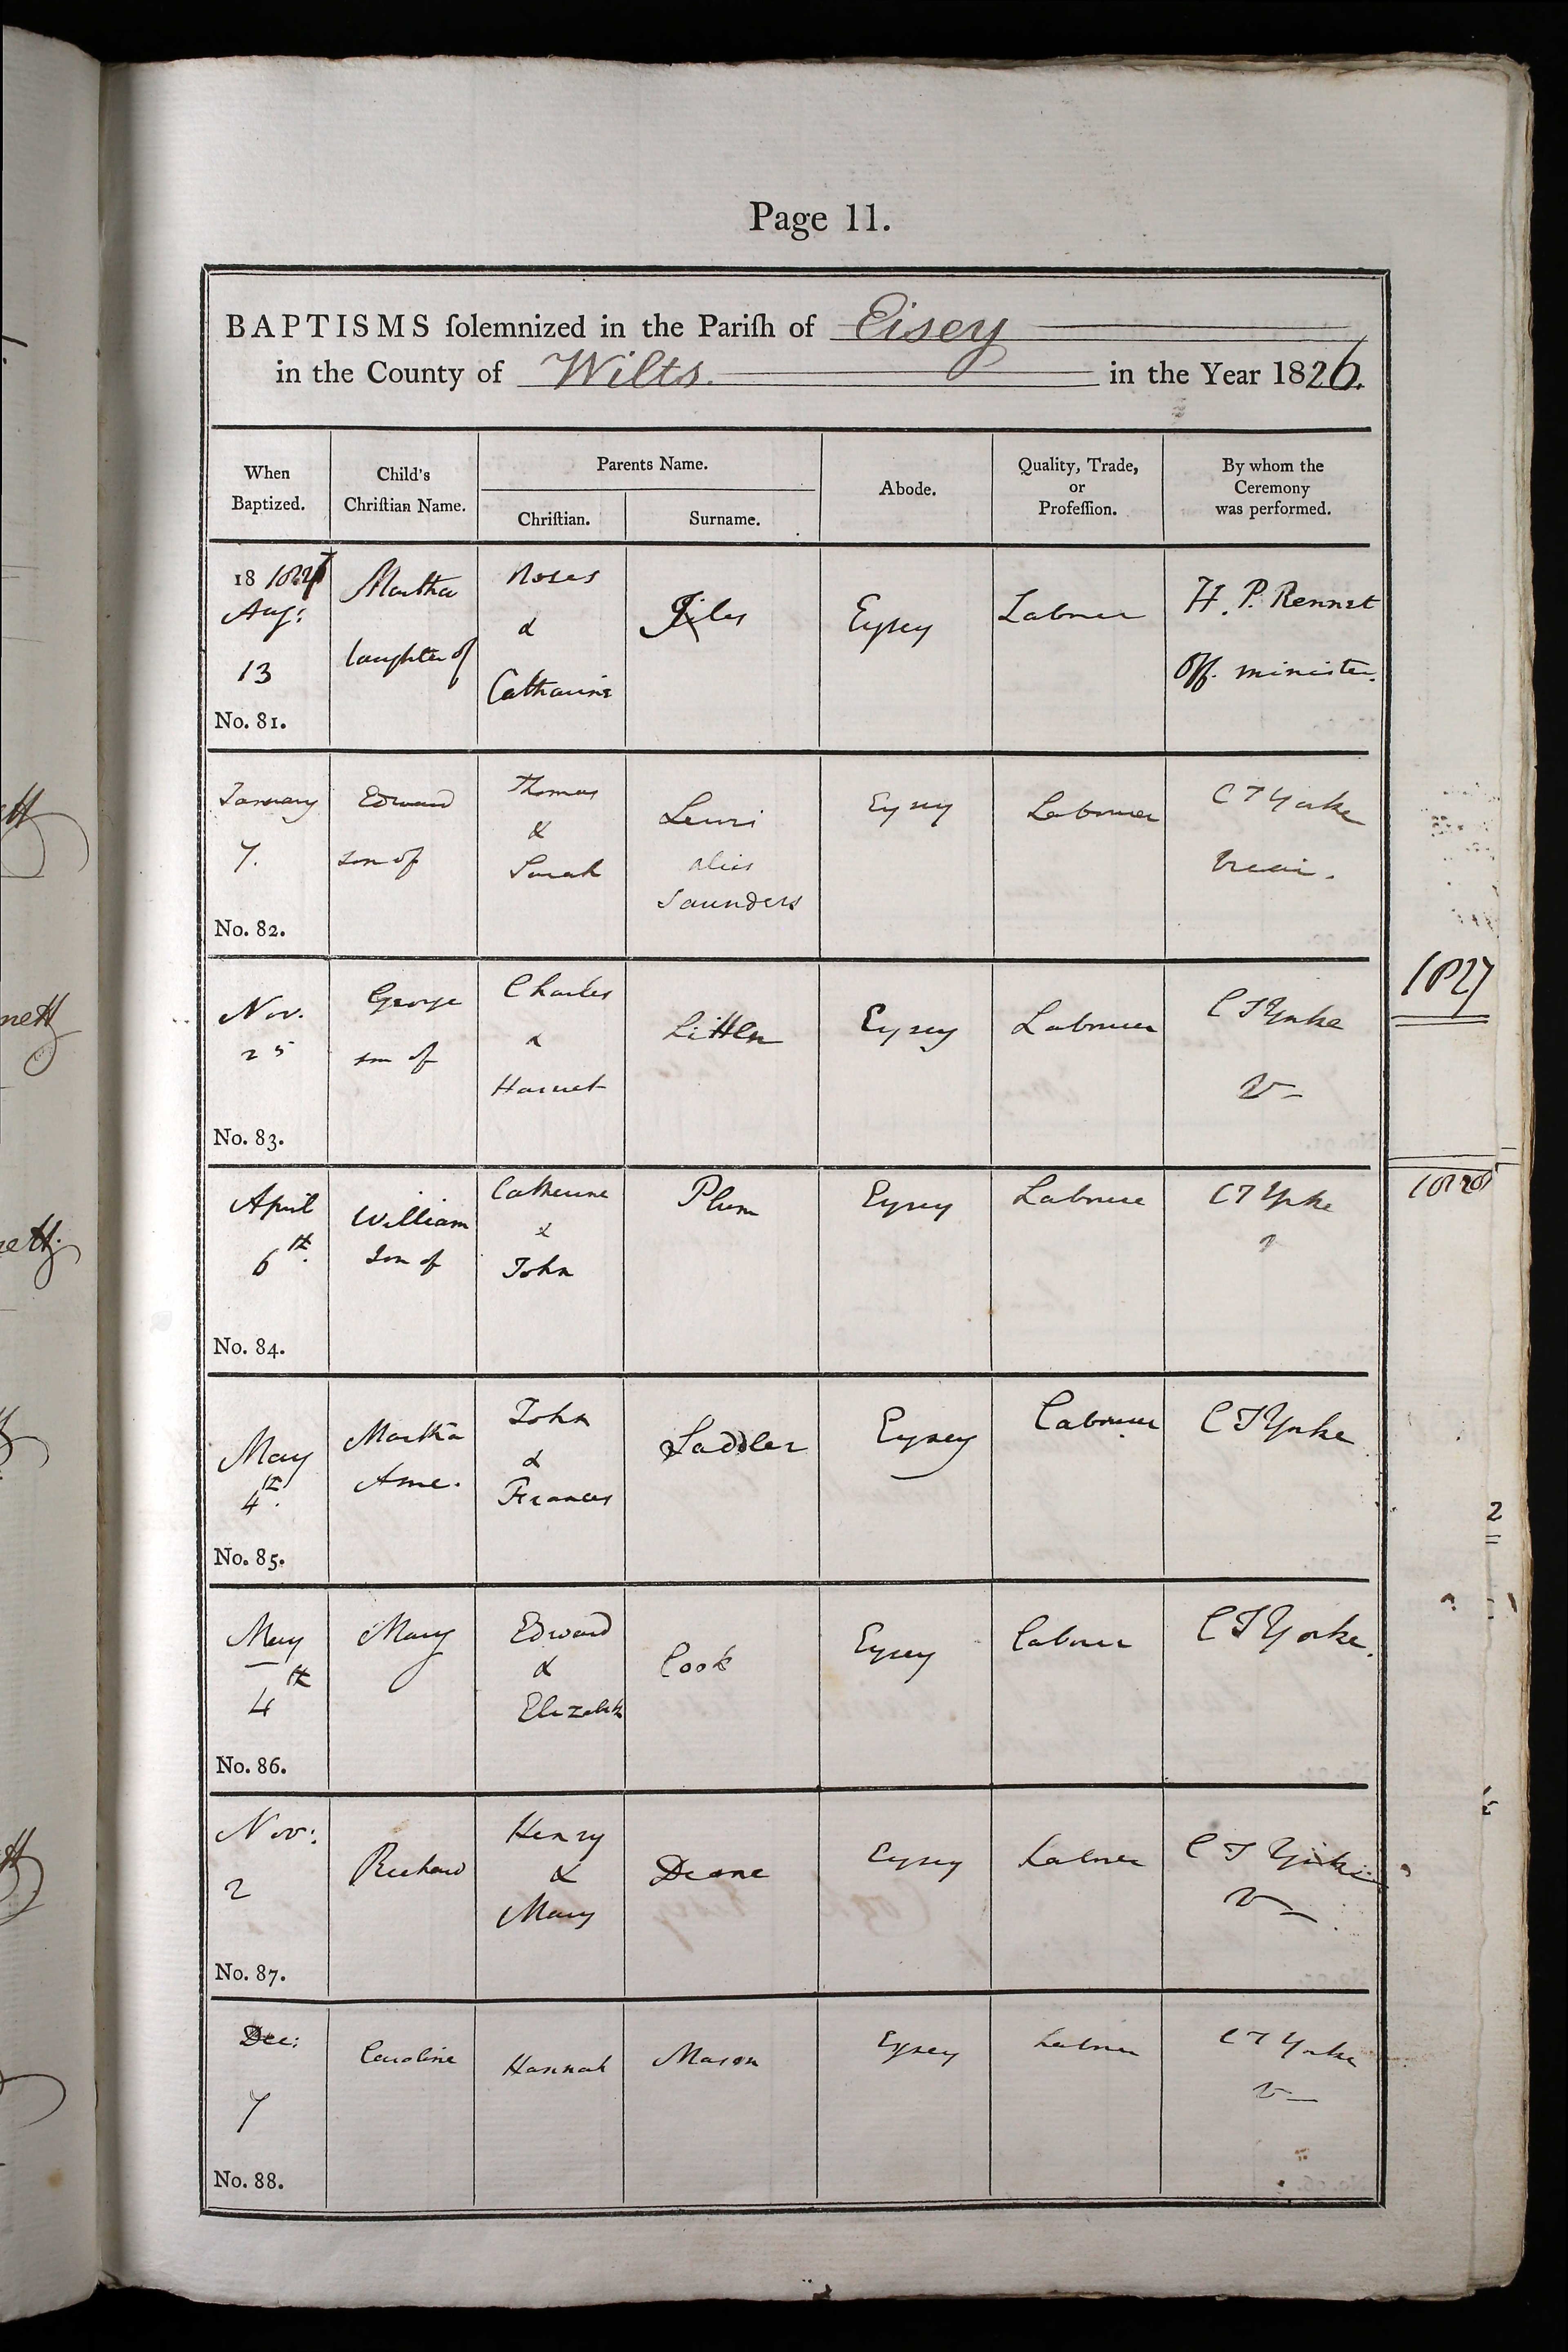 Page 11.
BAPTISMS ſolemnized in the Pariſh of Eisey
in the County of Wilts. in the Year 1826.
When Baptized.
Child's Chriſtian Name.
Parents Name.
Chriſtian.
Surname.
Abode.
Quality, Trade, or Profeſſion.
By whom the Ceremony was performed.
18
Aug:
13
No. 81.
Martha
daughter of
Moses
&
Catharine
Giles
Eysey
Labourer
H. P. Rennett
Off. minister.
January
7.
No. 82.
Edward
son of
Thomas
&
Sarah
Lewis
alias
Saunders
Eysey
Labourer
C T Yorke
Vicar.
Nov.
25
No. 83.
George
son of
Charles
&
Harriet
Eysey
Labourer
C T Yorke
V
1827
April
6th.
No. 84.
William
Son of
Catherine
&
John
Plum
Eysey
Labourer
C T Yorke
1828
May
4th.
No. 85.
Martha
Anne.
John
&
Frances
Saddler
Eysey
Labourer
C T Yorke
2
May
4th
No. 86.
Mary
Edward
&
Elizabeth
Cook
Eysey
Labourer
C T Yorke.
Nov:
2
No. 87.
Richard
Henry
&
Mary
Deane
Eysey
Labourer
C T Yorke
V
Dec:
7
No. 88.
Caroline
Hannah
Mason
Eysey
Labourer
C T Yorke
V